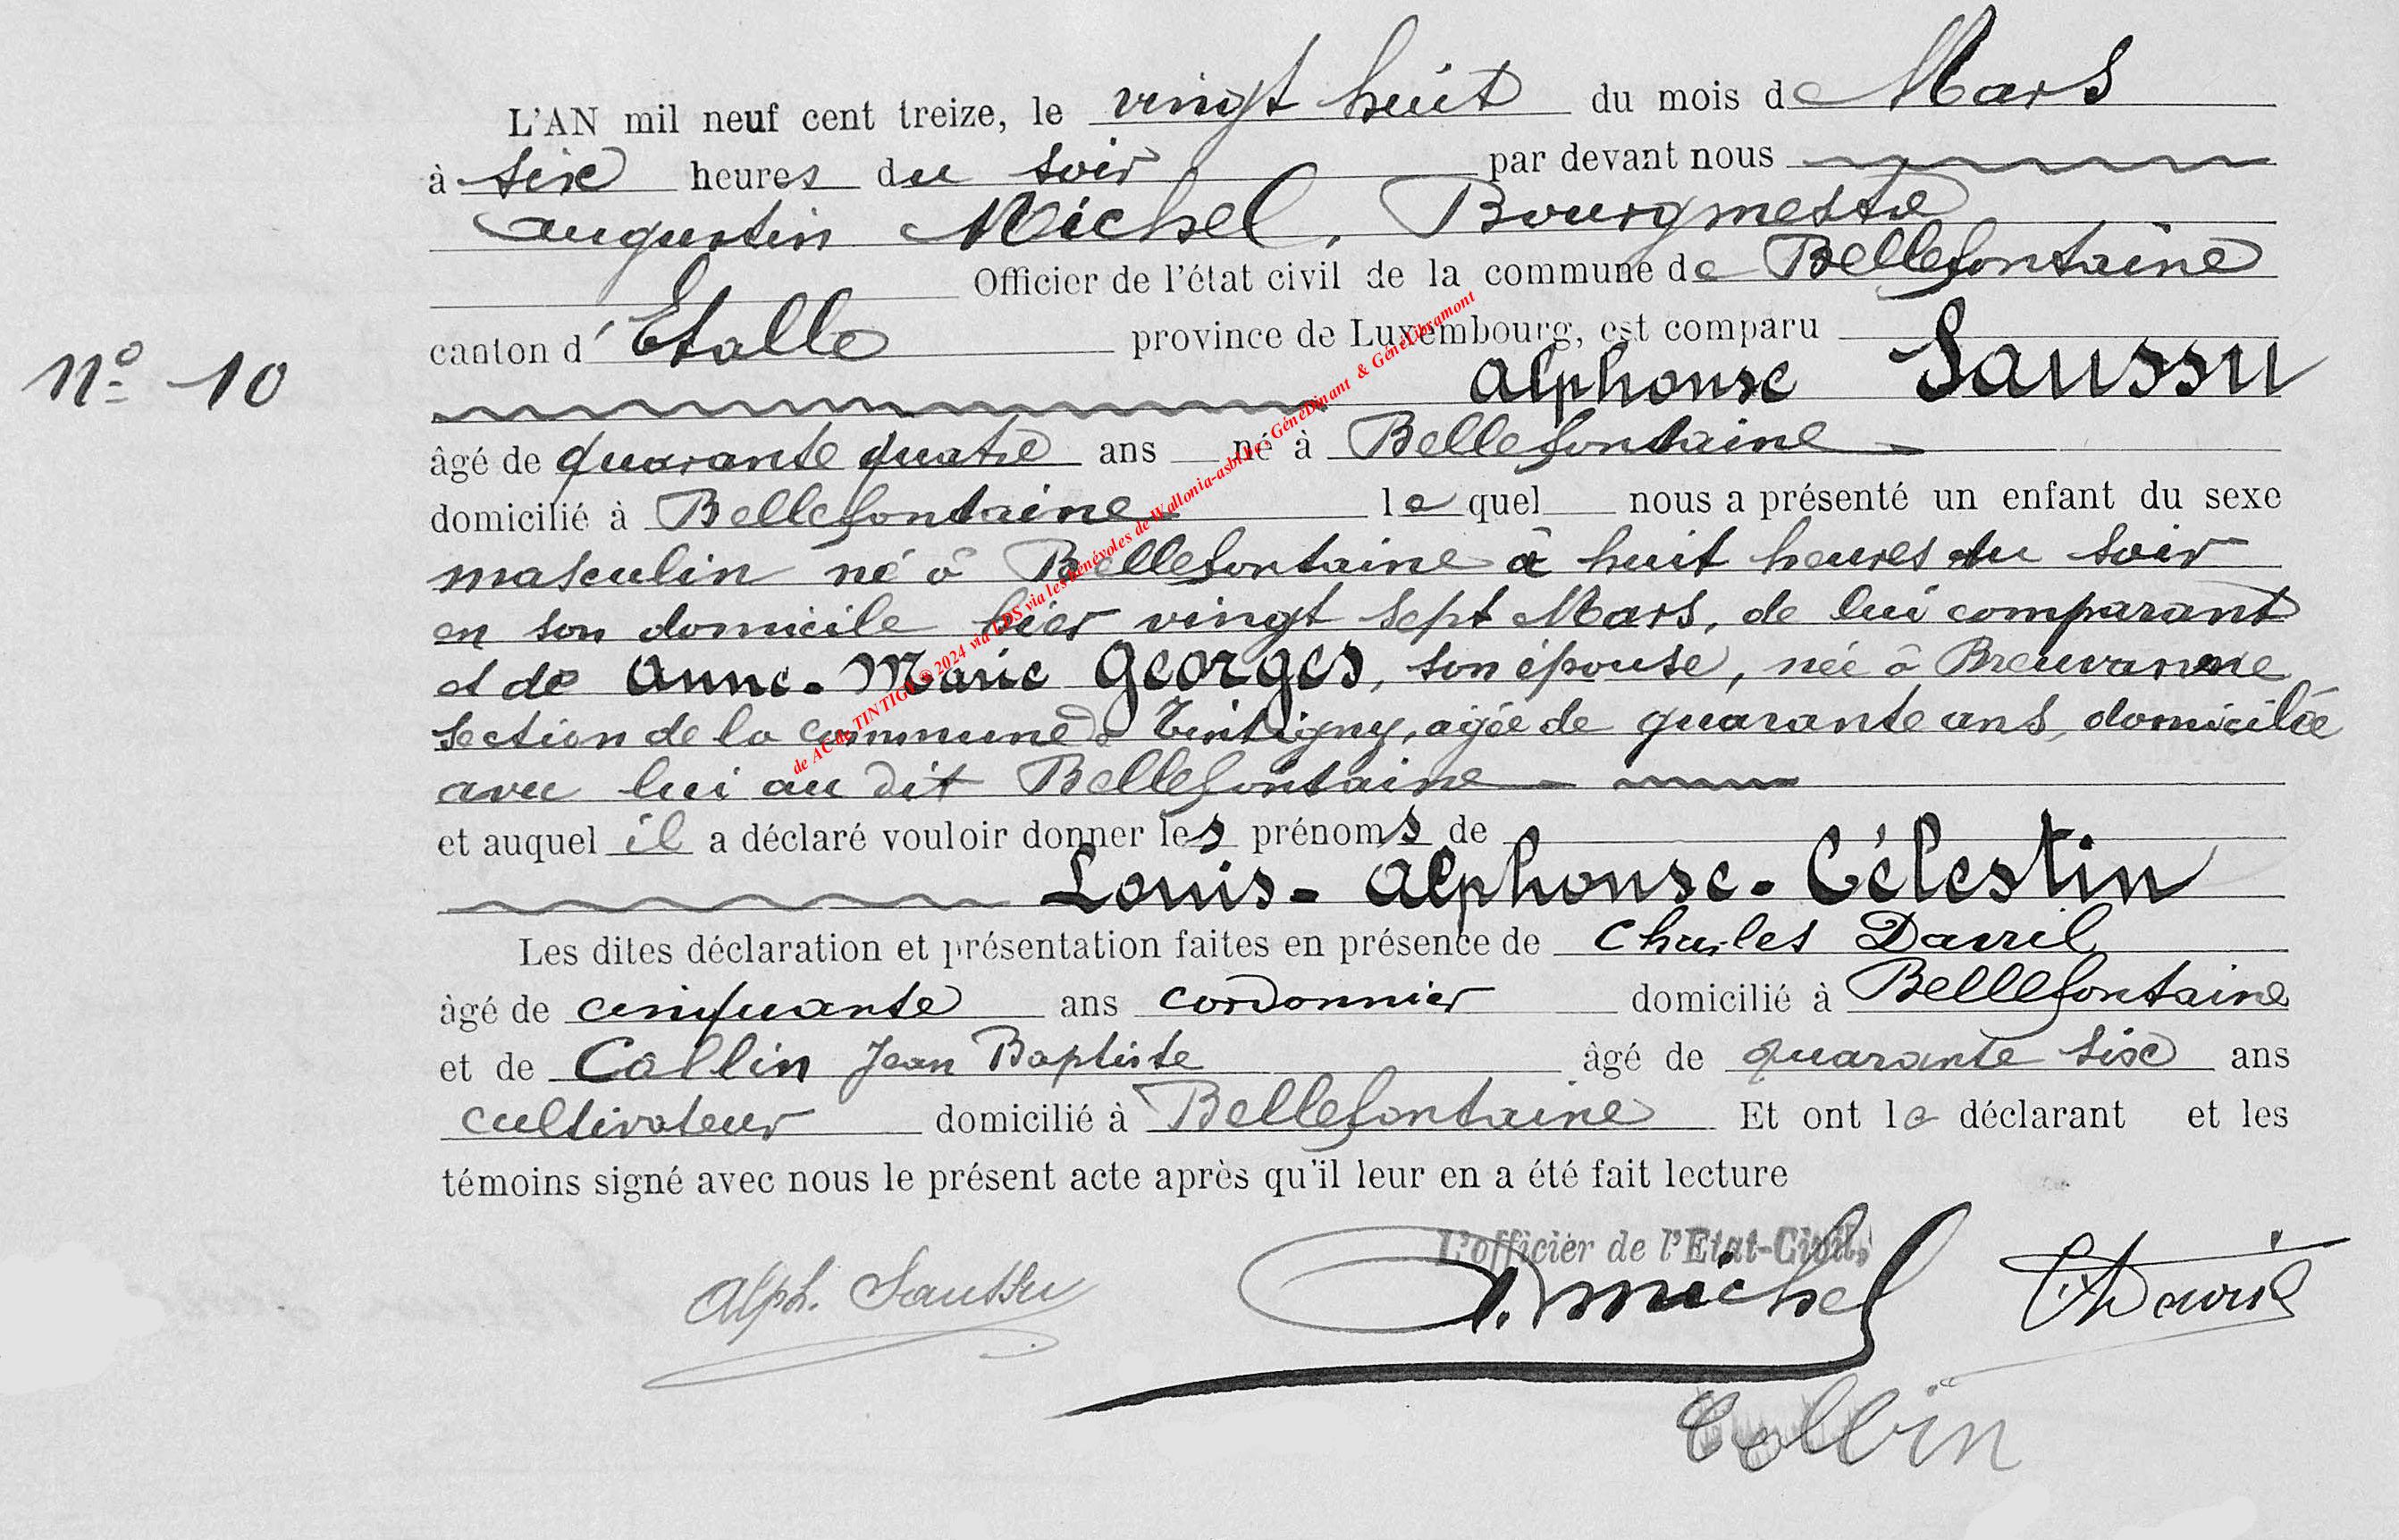 L'AN mil neuf cent treize, le vingt huit du mois de Mars
à six heures du soir par devant nous
Augustin Michel, Bourgmestre
Officier de l'état civil de la commune de Bellefontaine
canton d'Etalle province de Luxembourg, est comparu
N° 10
Alphonse Saussu
âgé de quarante quatre ans né à Bellefontaine
domicilié à Bellefontaine lequel nous a présenté un enfant du sexe
masculin né à Bellefontaine à huit heures du soir
en son domicile hier vingt sept Mars, de lui comparant
et de Anne-Marie Georges, son épouse, née à Breuvanne
section de la commune de Tintigny, agée de quarante ans, domiciliée
avec lui au dit Bellefontaine
et auquel il a déclaré vouloir donner les prénoms de
Louis-Alphonse-Célestin
Les dites déclaration et présentation faites en présence de Charles Davril
âgé de cinquante ans cordonnier domicilié à Bellefontaine
et de Collin Jean Baptiste âgé de quarante six ans
cultivateur domicilié à Bellefontaine Et ont le déclarant et les
témoins signé avec nous le présent acte après qu'il leur en a été fait lecture
L'officier de l'Etat-Civil,
Alph. Saussu A. Michel Ch Davril
Collin
de AC de TINTIGNY © 2024 via UDS via les bénévoles de Wallonia-asbl.be, GénéDinant & GénéLibramont